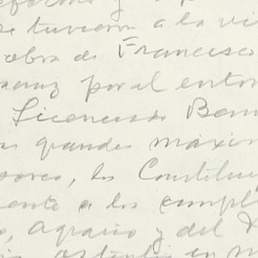 y
se tuvieron a la vi
obra de Francisco
por el enton
Licenciado Ben
as grandes máxim
sores, los Constituy
ente a los cumpli
o, agrario y del
en m